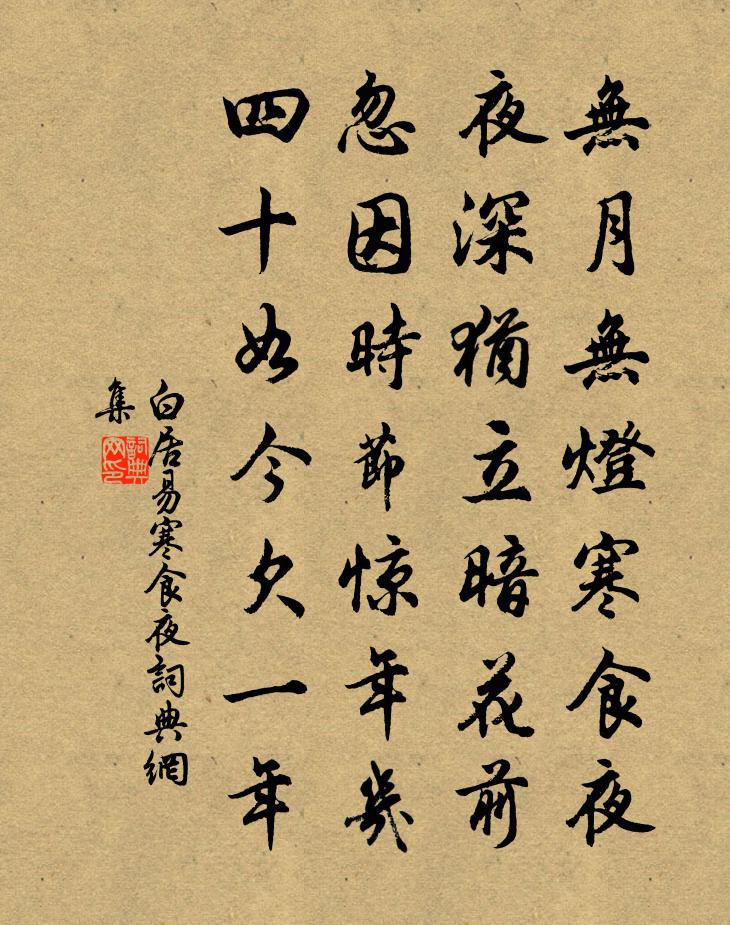 無月無燈寒食夜
夜深猶立暗花前
忽因時節惊年幾
四十如今欠一年
白居易寒食夜詞典網
集
詞典
网印